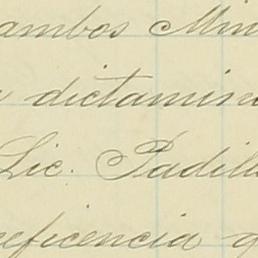 ambos Min
y dictamin
Lic. Padill
eficencia q